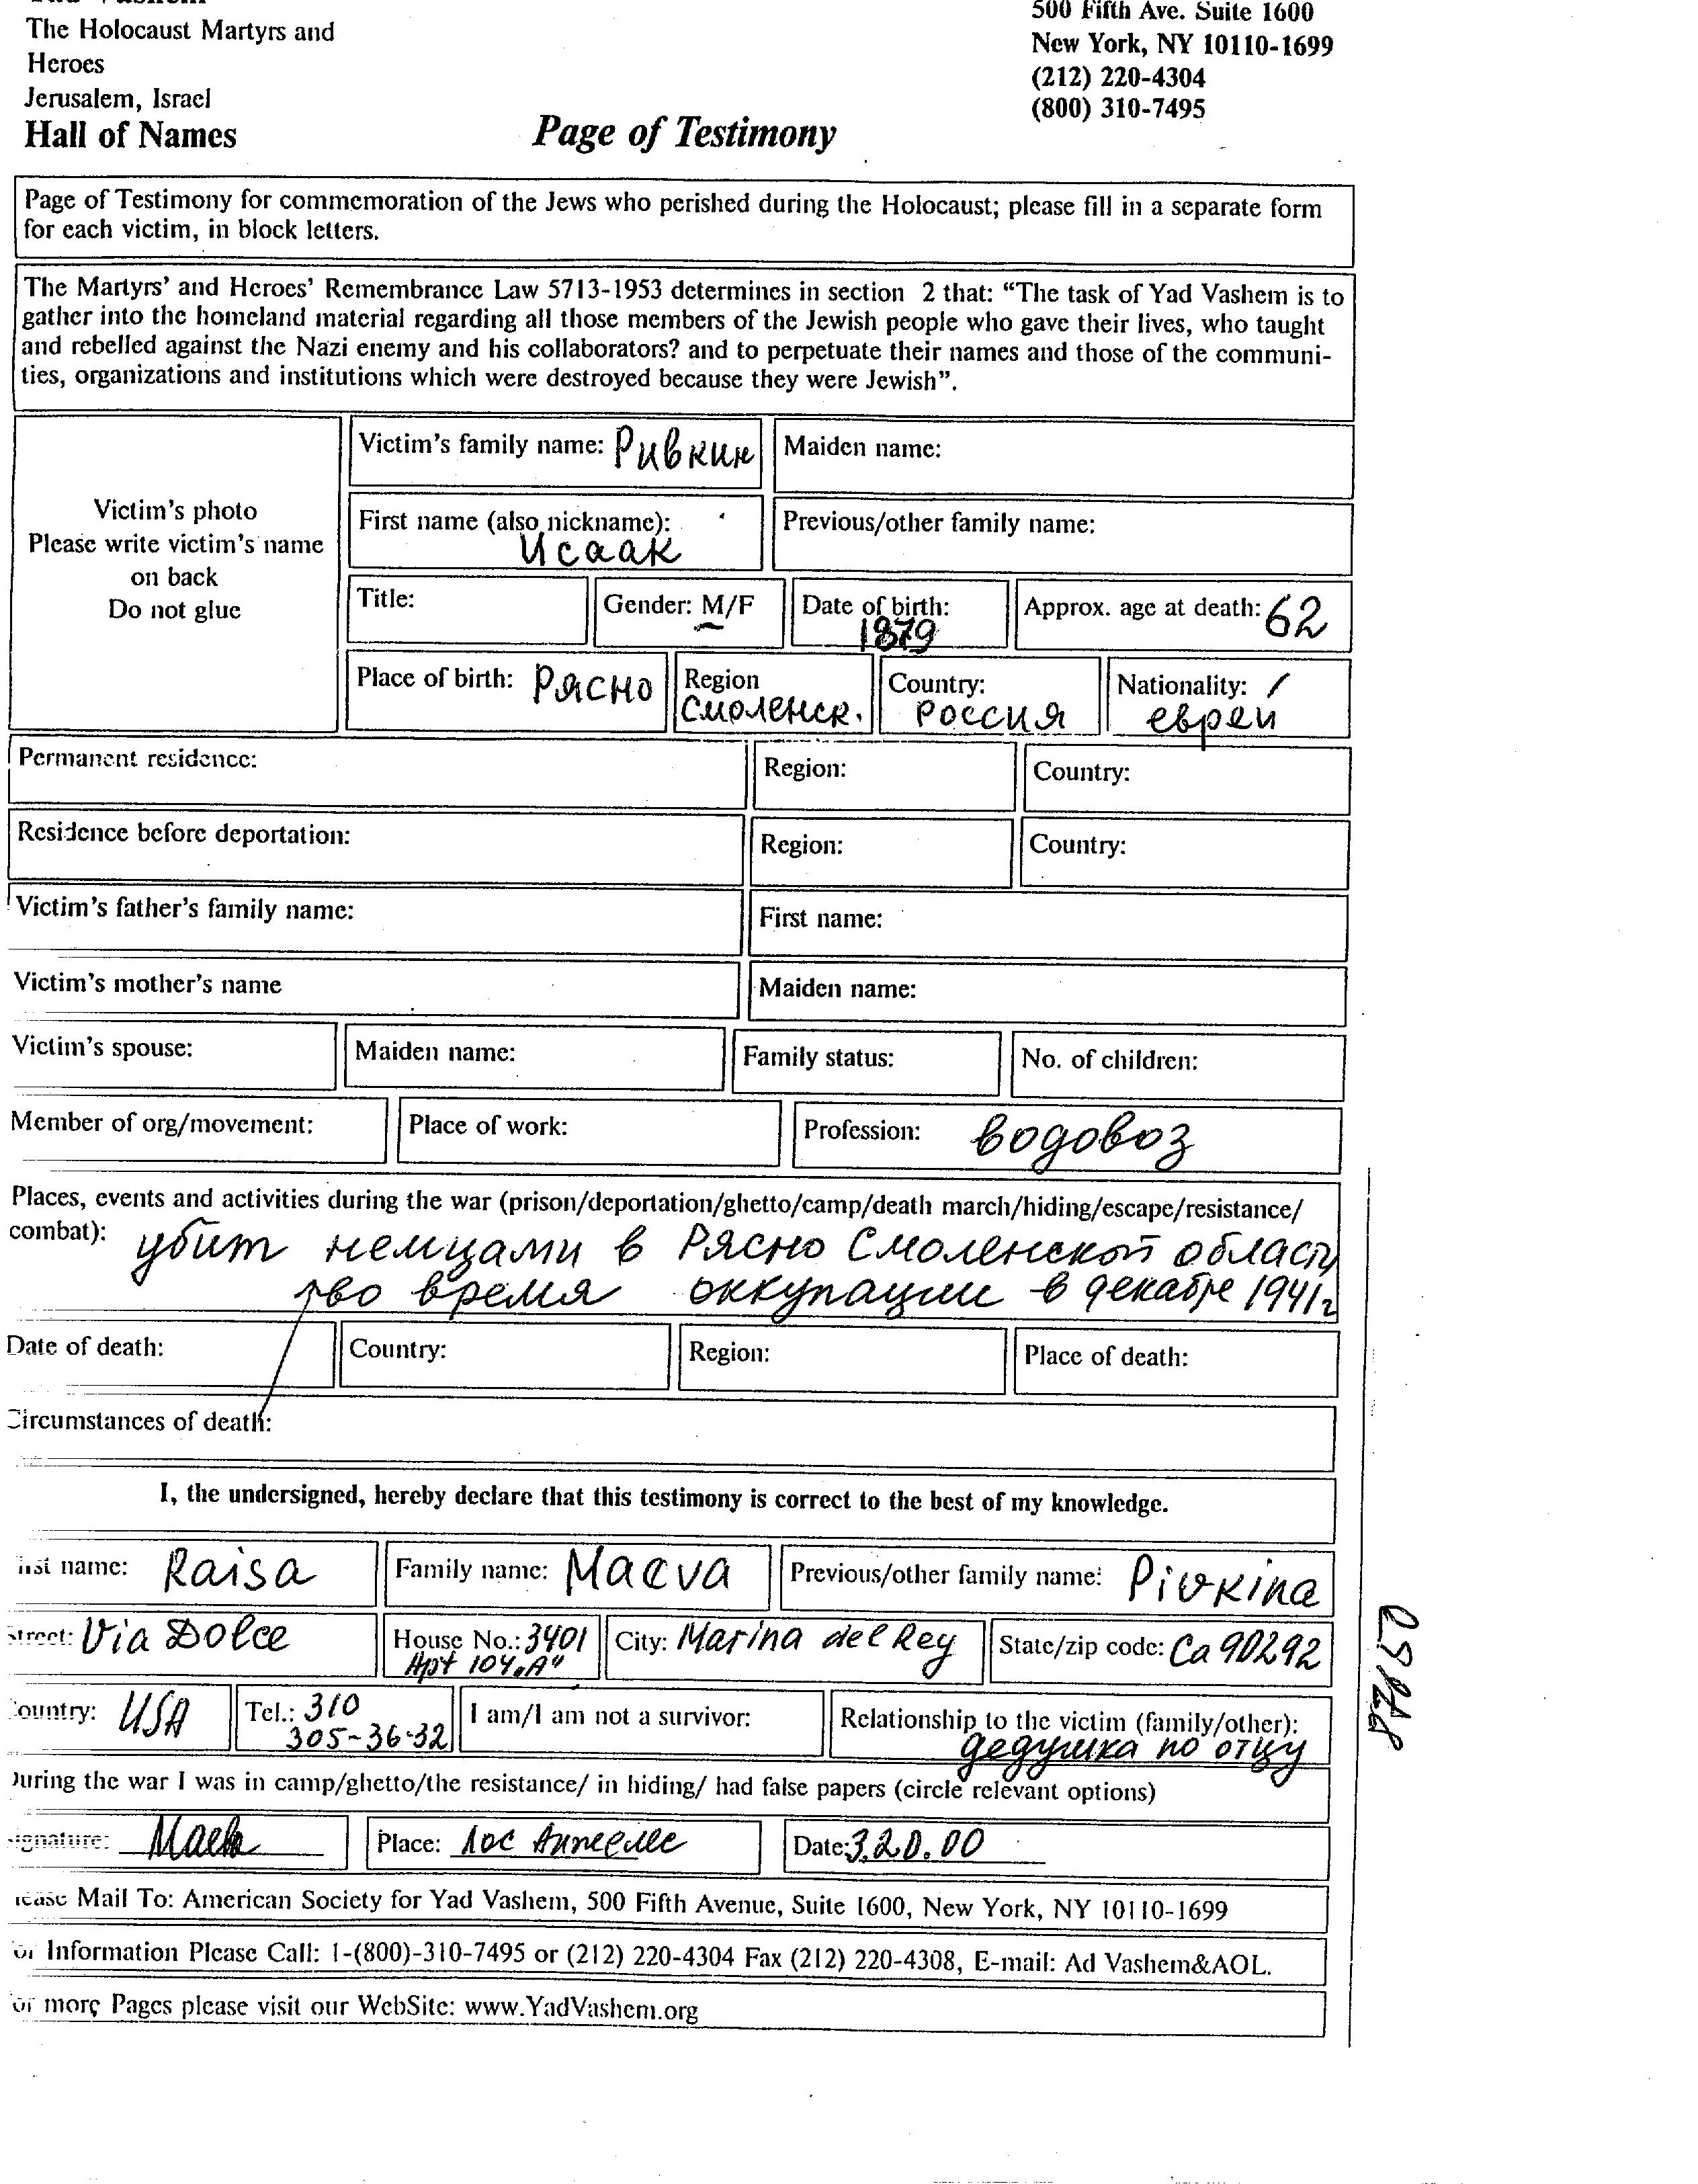 The Holocaust Martyrs and
Heroes
Jerusalem, Israel
Hall of Names
500 Fifth Ave. Suite 1600
New York, NY 10110-1699
(212) 220-4304
(800) 310-7495
Page of Testimony
Page of Testimony for commemoration of the Jews who perished during the Holocaust; please fill in a separate form
for each victim, in block letters.
The Martyrs' and Heroes' Remembrance Law 5713-1953 determines in section 2 that: "The task of Yad Vashem is to
gather into the homeland material regarding all those members of the Jewish people who gave their lives, who taught
and rebelled against the Nazi enemy and his collaborators? and to perpetuate their names and those of the communi-
ties, organizations and institutions which were destroyed because they were Jewish".
Victim's photo
Please write victim's name
on back
Do not glue
Victim's family name: Ривкин
Maiden name:
First name (also nickname):
Исаак
Previous/other family name:
Title:
Gender: M/F
Date of birth:
1879
Approx. age at death: 62
Place of birth: Рясно
Region
Смоленск.
Country:
Россия
Nationality:
еврей
Permanent residence:
Region:
Country:
Residence before deportation:
Region:
Country:
Victim's father's family name:
First name:
Victim's mother's name
Maiden name:
Victim's spouse:
Maiden name:
Family status:
No. of children:
Member of org/movement:
Place of work:
Profession: водовоз
Places, events and activities during the war (prison/deportation/ghetto/camp/death march/hiding/escape/resistance/
combat): убит немцами в Рясно Смоленской област
во время оккупации в декабре 1941г
Date of death:
Country:
Region:
Place of death:
Circumstances of death:
I, the undersigned, hereby declare that this testimony is correct to the best of my knowledge.
name: Raisa
Family name: Maeva
Previous/other family name: Pivkina
Street: Via Dolce
House No.: 3401
Apt 104 „A"
City: Marina del Rey
State/zip code: Ca 90292
Country: USA
Tel.: 310
305-36-32
I am/I am not a survivor:
Relationship to the victim (family/other):
дедушка по отцу
During the war I was in camp/ghetto/the resistance/ in hiding/ had false papers (circle relevant options)
Signature:
Place: Лос Анжелес
Date: 3.20.00
Please Mail To: American Society for Yad Vashem, 500 Fifth Avenue, Suite 1600, New York, NY 10110-1699
For Information Please Call: 1-(800)-310-7495 or (212) 220-4304 Fax (212) 220-4308, E-mail: Ad Vashem&AOL.
For more Pages please visit our WebSite: www.YadVashem.org